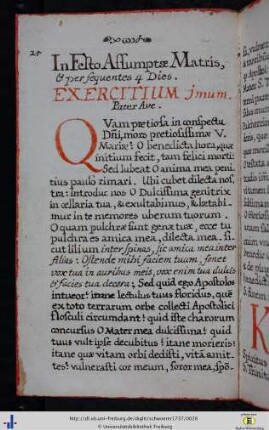 25
In Festo Assumptæ Matris,
& per sequentes 4 Dies.
EXERCITIUM jmum.
Pater Ave.
QVam pretiosa in conspectu
Dni, mors pretiosissimæ V.
Mariæ! O benedicta hora, quæ
initium fecit, tam felici morti!
Sed lubeat O anima mea peni
tius paulo rimari. Ubi cubet dilecta nos,
tra: introduc nos O Dulcissima genitrix
in cellaria tua, & exultabimus, & lætabi-
mur in te memores uberum tuorum.
O quam pulchræ sunt genæ tuæ, ecce tu
pulchra es amica mea, dilecta mea. si
cut lilium inter spinas, sic amica mea inter
filias: Ostende mihi faciem tuam, sonet
vox tua in auribus meis, vox enim tua dulcis
& facies tua decora; Sed quid ego Apostolos
intueor! inane lectulus tuus floridus, quē
ex toto terrarum orbe collecti Apostolici
flosculi circumdant! quid iste charorum
concursus O Mater mea dulcissima! quid
tuus vult ipse decubitus! itane morieris!
itane quæ vitam orbi dedisti, vitā amit,
tes! vulnerasti cor meum, soror mea, spō,
http://dl.ub.uni-freiburg.de/diglit/schwoerer1737/0026
© Universitätsbibliothek Freiburg